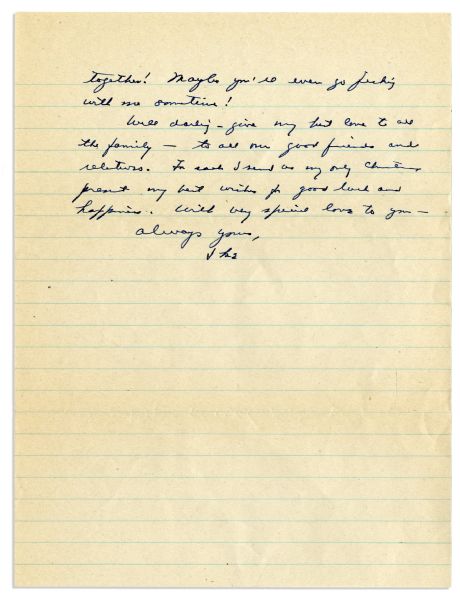 together! Maybe you'll even go fishing
with me sometime!
Well darling - give my best love to all
the family - to all our good friends and
relatives. To each I send as my only Christmas
present my best wishes for good luck and
happiness. With very special love to you -
always yours,
Ike